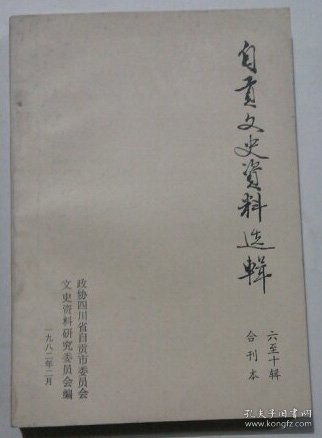 自贡文史资料选辑
六至十辑
合刊本
政协四川省自贡市委员会
文史资料研究委员会编
一九八二年二月
孔夫子旧书网